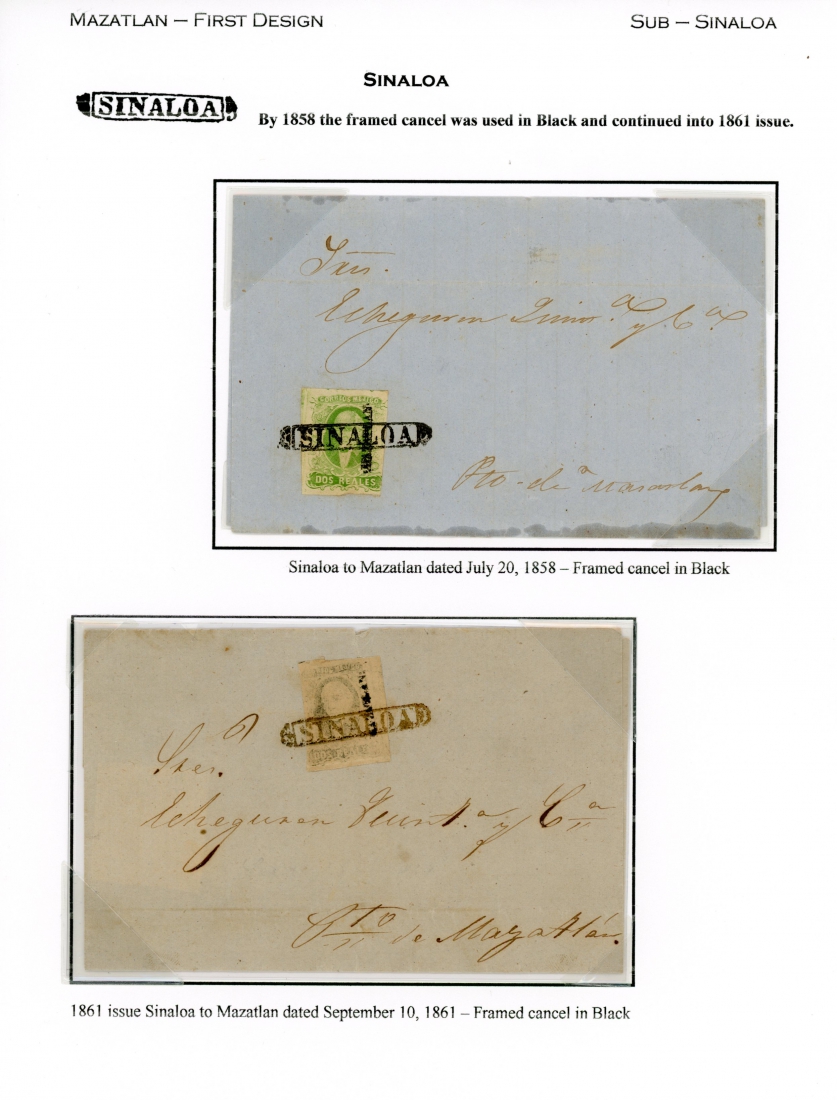 MAZATLAN – FIRST DESIGN
SUB – SINALOA
SINALOA
SINALOA
By 1858 the framed cancel was used in Black and continued into 1861 issue.
Echeguren Quin.ª y C.ª
CORREOS MEJICO
MAZATLAN
SINALOA
DOS REALES
Pto. de Mazatlan
Sinaloa to Mazatlan dated July 20, 1858 – Framed cancel in Black
MAZATLAN
SINALOA
DOS REALES
Sres.
Echeguren Quint.ª y C.ª
Pto de Mazatlán.
1861 issue Sinaloa to Mazatlan dated September 10, 1861 – Framed cancel in Black